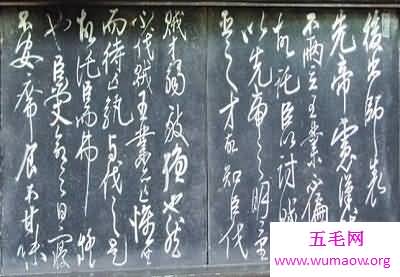 後出師表
先帝慮漢
不兩立王業不偏
故託臣以討賊
以先帝之明量
臣之才故知臣伐
賊才弱敵強也然
不伐賊王業亦亡惟坐
而待亡孰與伐之是
故託臣而弗疑
也臣受命之日寢
不安席食不甘味
五毛网
www.wumaow.org